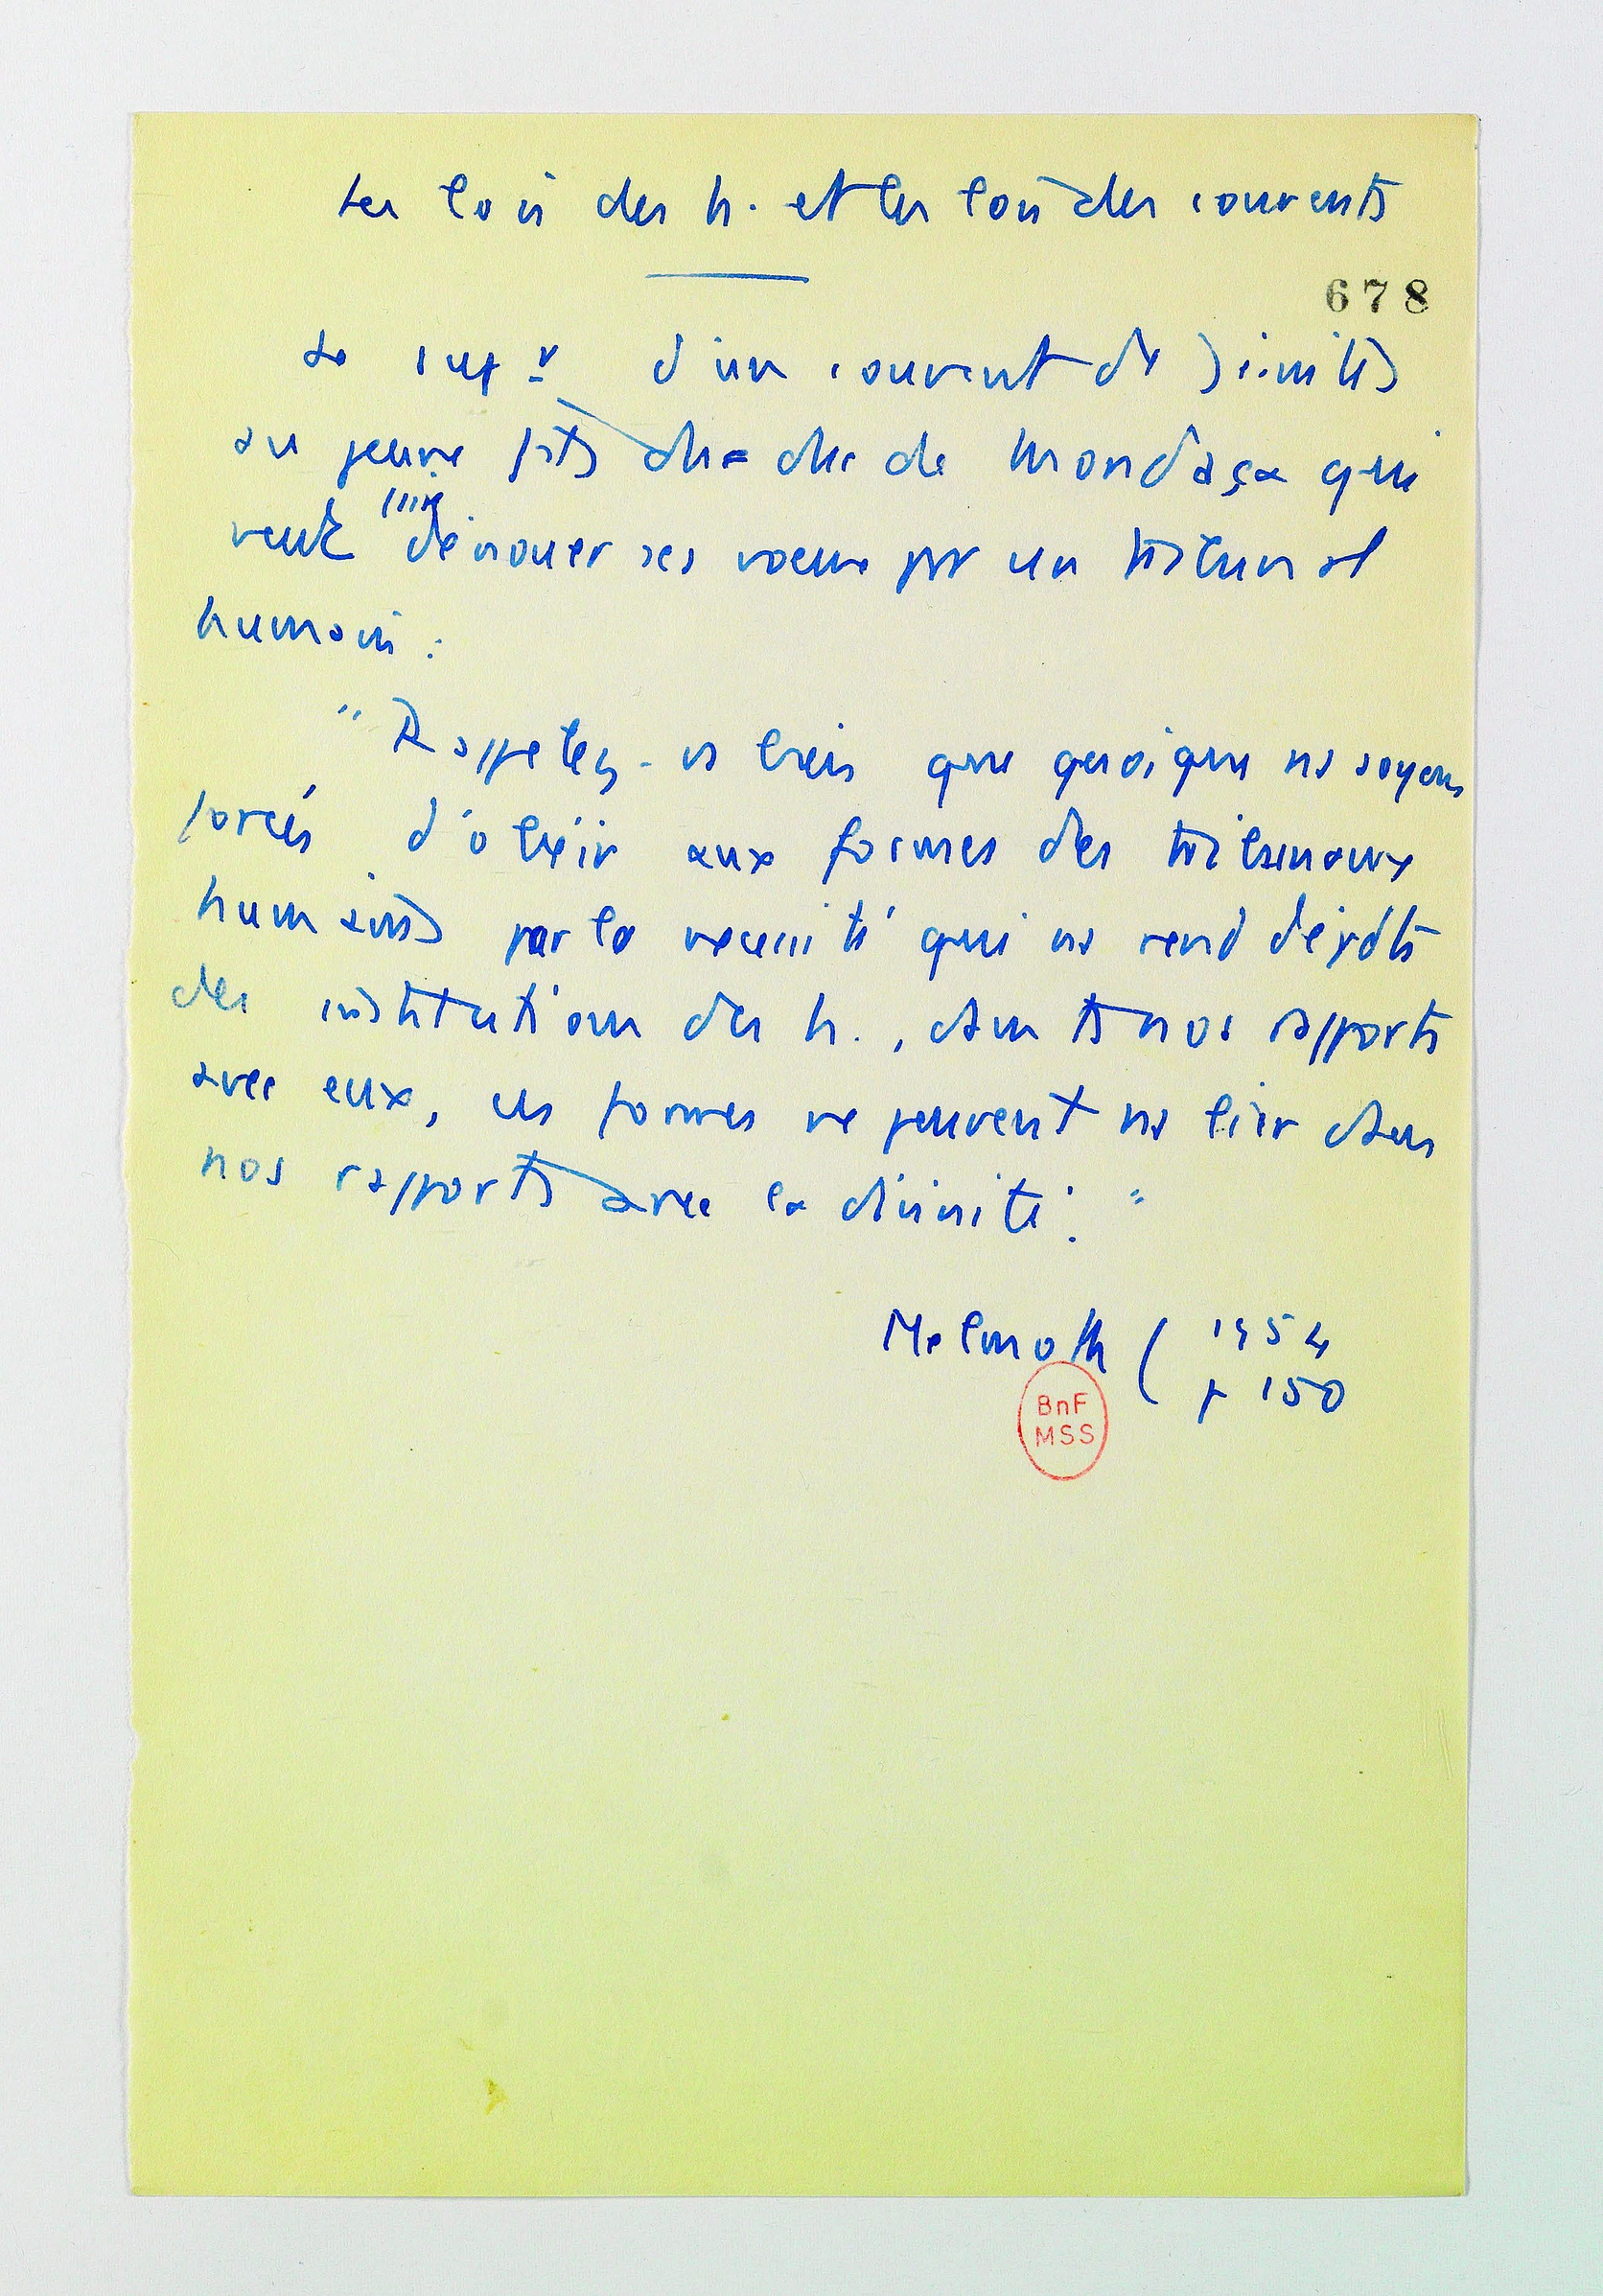 Les lois des h. et les lois des couvents
678
Le supr d'un couvent de Jésuites
au jeune duc de Mondaça qui
veut faire dénouer ses voeux par un tribunal
humain :
"Rappelez-vs bien que quoique ns soyons
forcés d'obéir aux formes des tribunaux
humains par la nécessité qui ns rend dépdts
des institutions des h., dans ts nos rapports
avec eux, ces formes ne peuvent ns lier dans
nos rapports avec la divinité."
Melmoth ( 1954
p 150
BnF
MSS